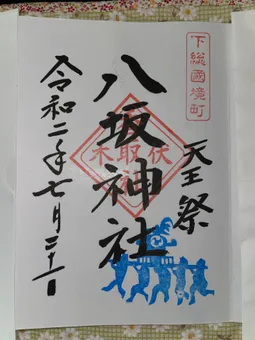 下総國境町
天王祭
八坂神社
伏取木
令和二年七月二十一日